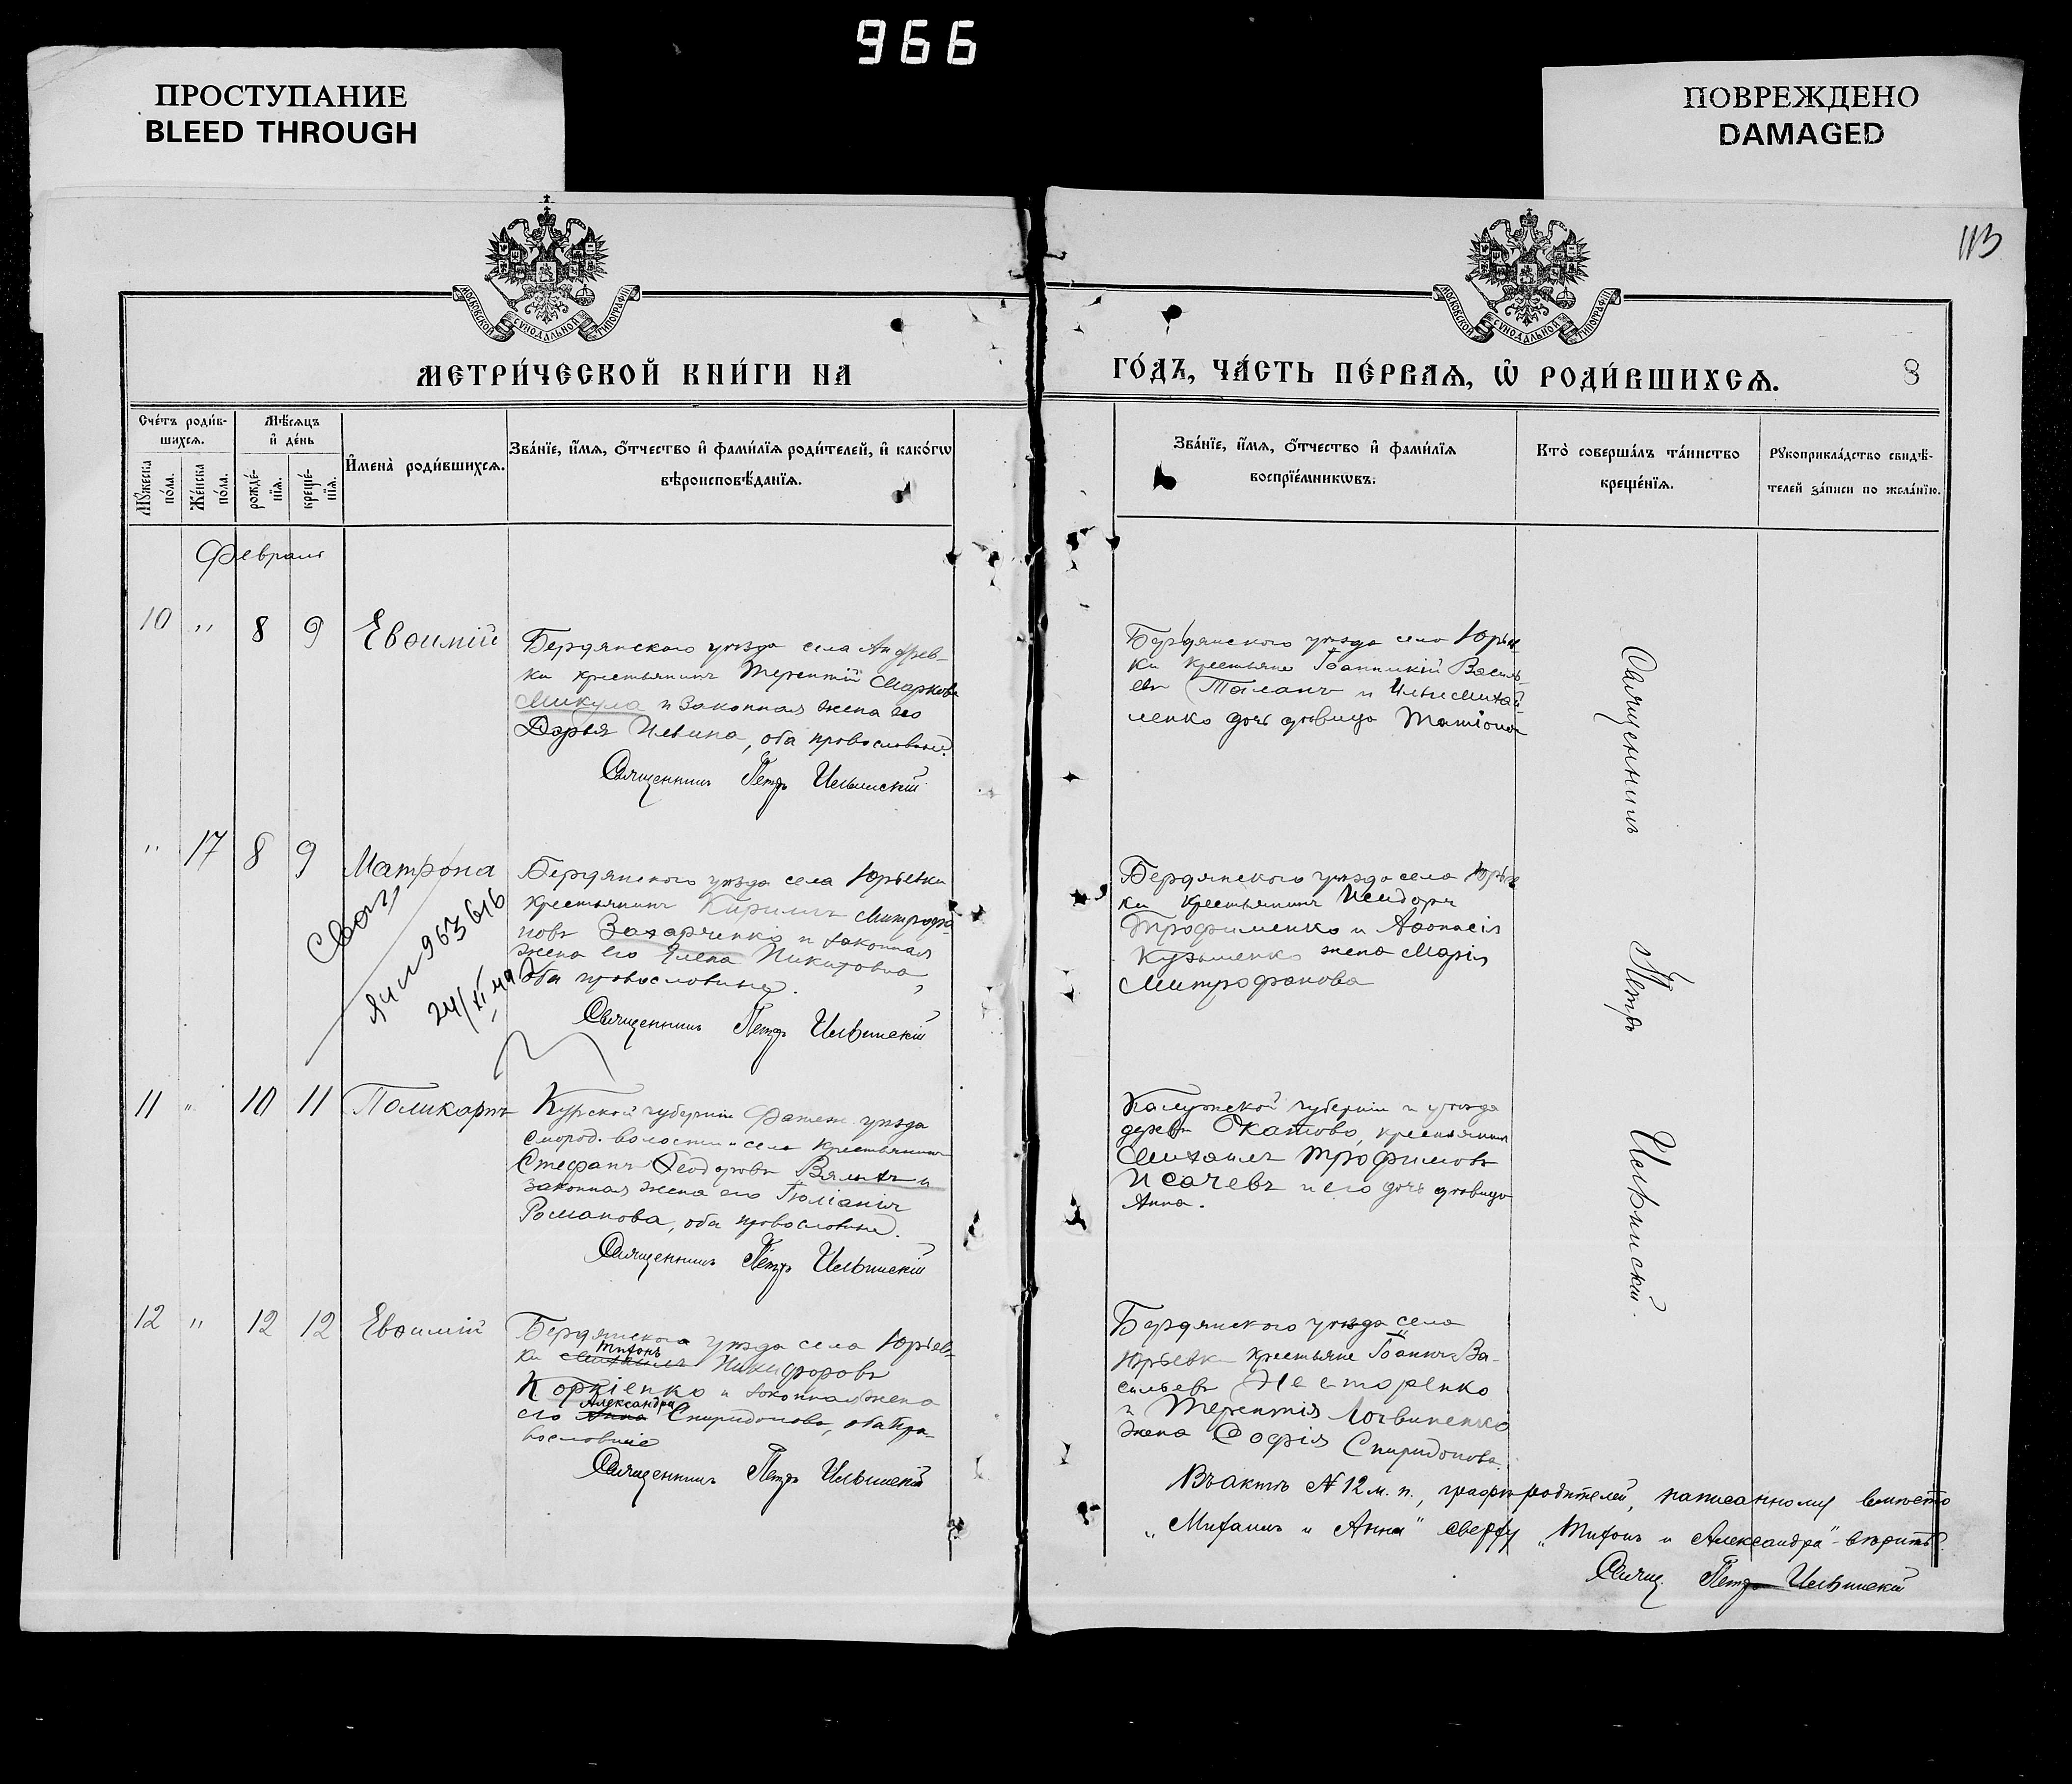 966
ПРОСТУПАНИЕ
BLEED THROUGH
ПОВРЕЖДЕНО
DAMAGED
113
МОСКОВСКОЙ СѴНОДАЛЬНОЙ ТИПОГРАФІИ
МОСКОВСКОЙ СѴНОДАЛЬНОЙ ТИПОГРАФІИ
МЕТРИ́ЧЕСКОЙ КНИ́ГИ НА
ГО́ДЪ, ЧА́СТЬ ПЕ́РВАѦ, Ѡ҆ РОДИ́ВШИХСѦ.
8
Счетъ роди́в-
шихсѧ.
Мѣсѧцъ
и҆ де́нь
Мꙋжеска
по́ла.
Же́нска
по́ла.
рожде́-
нїѧ.
креще́-
нїѧ.
И҆мена̀ роди́вшихсѧ.
Зва́нїе, и҆́мѧ, ѻ҆́тчество и҆ фами́лїѧ роди́телей, и҆ како́гѡ
вѣроисповѣ́данїѧ.
Зва́нїе, и҆́мѧ, ѻ҆́тчество и҆ фами́лїѧ
воспрїе́мникѡвъ.
Кто̀ соверша́лъ та́инство
креще́нїѧ.
Рꙋкоприкла́дство свидѣ́-
телей за́писи по жела́нїю.
Февраль
10 " 8 9 Евѳимій
Бердянскаго уѣзда села Андреев-
ки крестьянинъ Терентій Марковъ
Микула и законная жена его
Дарья Ильина, оба православные.
Священникъ Петръ Ильинскій
Бердянскаго уѣзда села Юрьев
ки крестьяне Іоанникій Василь-
евъ Таланъ и Ильи Михай-
ленко дочь дѣвица
" 17 8 9 Матрона
963616
Бердянскаго уѣзда села Юрьевки
крестьянинъ Кириллъ Митрофа-
новъ Захарченко и законная
жена его Елена Никитовна,
оба православные.
Священникъ Петръ Ильинскій
Бердянскаго уѣзда села Юрьев
ки крестьянинъ Исидоръ
Трофименко и Аѳонасія
Кузьменко жена Марія
Митрофанова
11 " 10 11 Поликарпъ
Курской губерніи Фатеж. уѣзда
Смород. волости и села крестьянинъ
Стефанъ Ѳеодоровъ и
законная жена его Іюліанія
Романова, оба православные.
Священникъ Петръ Ильинскій
Калужской губерніи и уѣзда
дерев. крестьянинъ
Михаилъ Трофимовъ
Исачевъ и его дочь дѣвица
Анна.
12 " 12 12 Евѳимій
Бердянскаго уѣзда села Юрьев-
Тихонъ
ки Михаилъ Никифоровъ
Корніенко и законная жена
Александра
его Анна Спиридонова, оба пра-
вославные
Священникъ Петръ Ильинскій
Бердянскаго уѣзда села
Юрьевки крестьяне Іоаннъ Ва-
сильевъ Несторенко
и Терентія Логвиненко
жена Софія Спиридонова.
Священникъ Петръ Ильинскій.
Въ актѣ № 12 м. п., графѣ родителей, написанному вмѣсто
„Михаилъ и Анна" сверху „Тихонъ и Александра" - вѣрить.
Свящ. Петръ Ильинскій